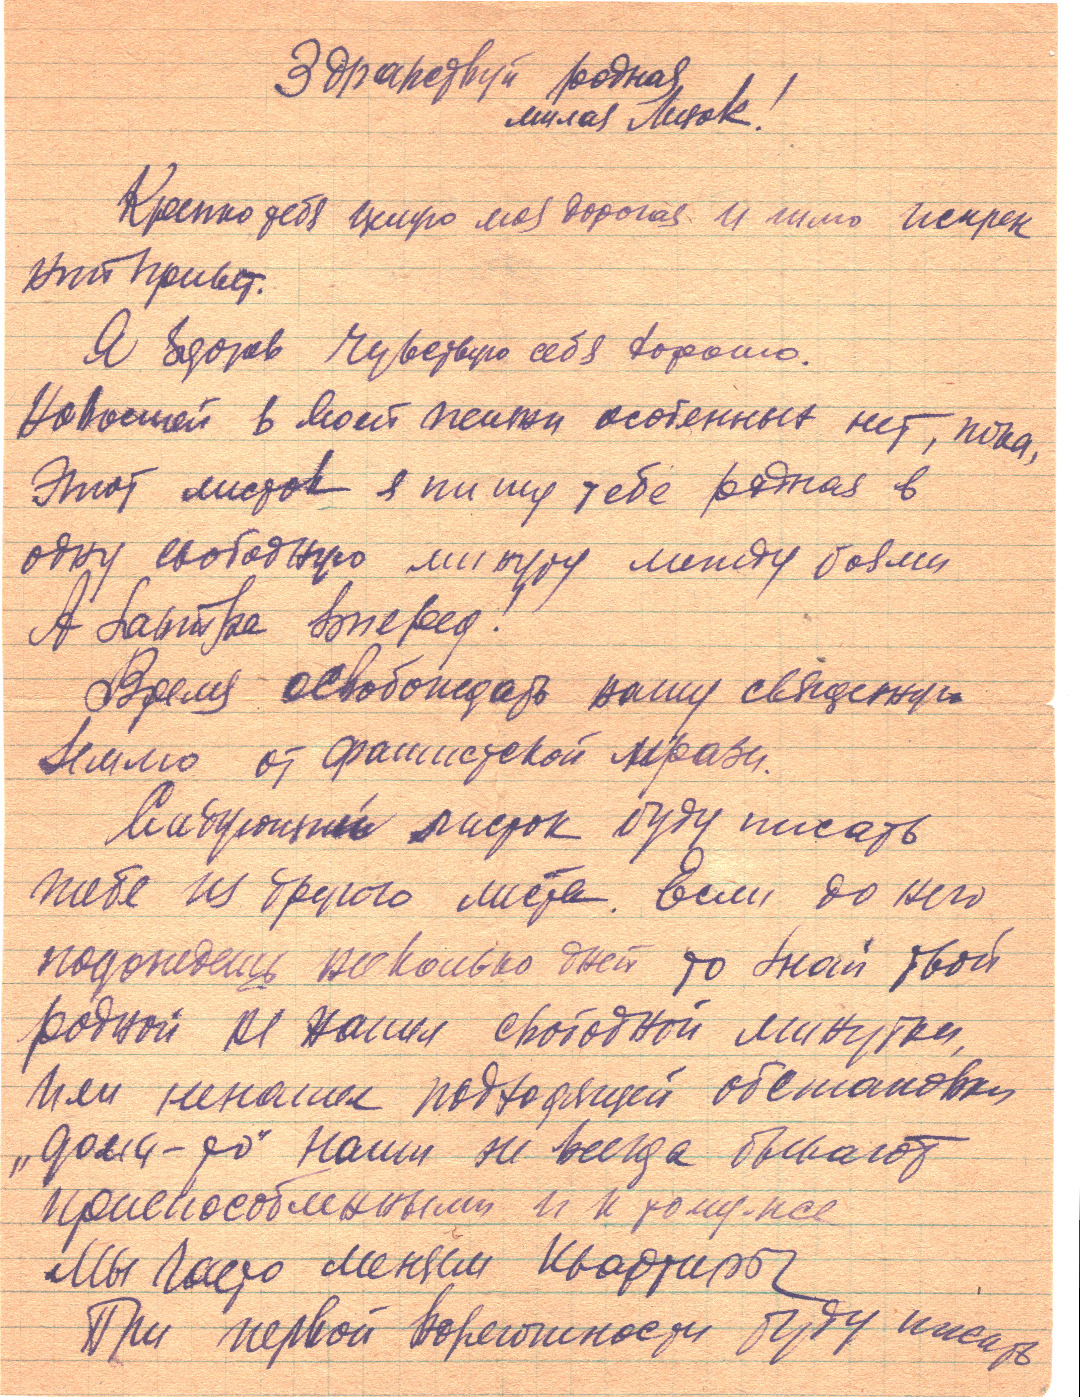 Здравствуй родная
милая Лизок!
Крепко тебя целую моя дорогая и шлю искрен
ний привет.
Я здоров чувствую себя хорошо.
Новостей в моей жизни особенных нет, пока,
Этот листок я пишу тебе родная в
одну свободную минуту между боями
А завтра вперед!
Время освобождать нашу священную
землю от фашистской мрази.
Следующий листок буду писать
тебе из другого места. Если до него
подождешь несколько дней то знай твой
родной не нашел свободной минутки,
или ненашел подходящей обстановки
„дома-то" наши не всегда бывают
приспособленными и к тому-же
Мы часто меняем квартиры
При первой возможности буду писать